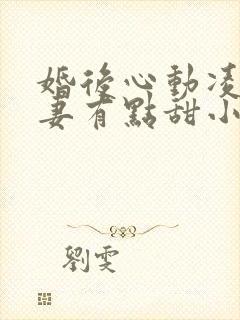 婚後心動凌
妻有點甜小
劉雯